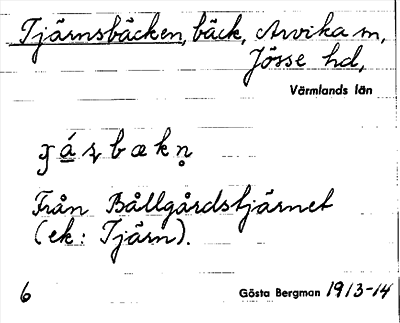 Tjärnsbäcken, bäck, Arvika m,
Jösse hd,
Värmlands län
Från Bållgårdstjärnet
(ek: Tjärn).
6 Gösta Bergman 1913-14